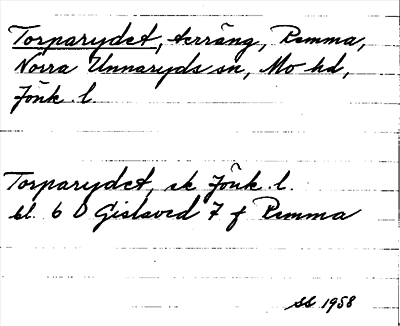 Torparydet, terräng, Remma,
Norra Unnaryds sn, Mo hd,
Jönk. l.
Torparydet, ek Jönk. l.
bl. 6 D Gislaved 7 f Remma
SB 1958